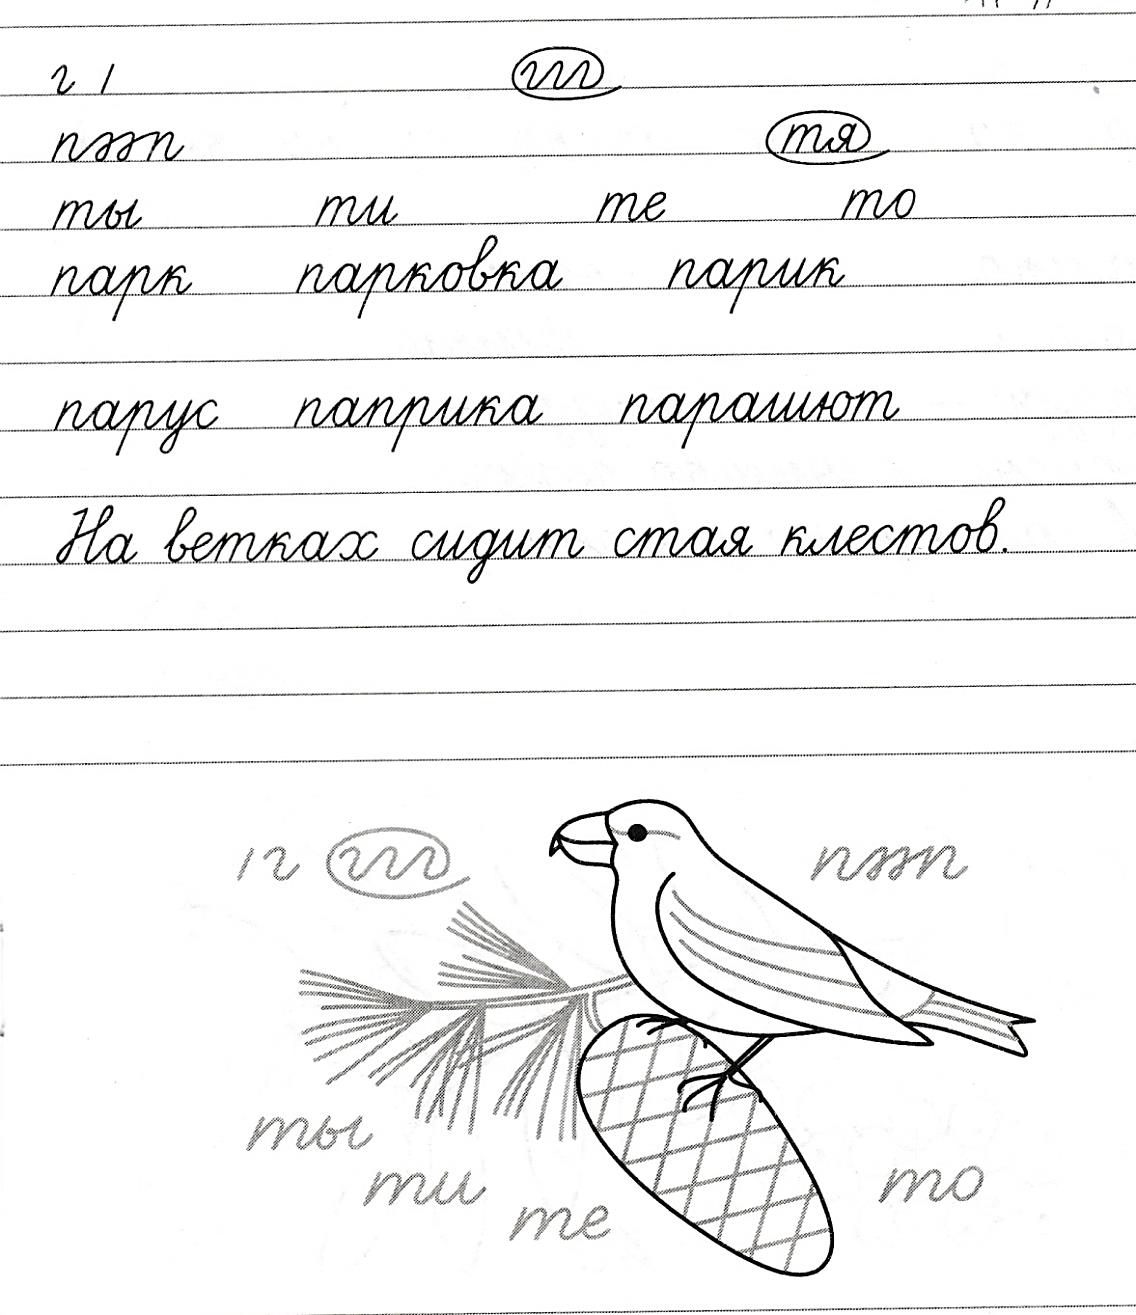 г /
тя
ты ти те то
парк парковка парик
парус паприка парашют
На ветках сидит стая клестов.
/ г
ты
ти
те
то